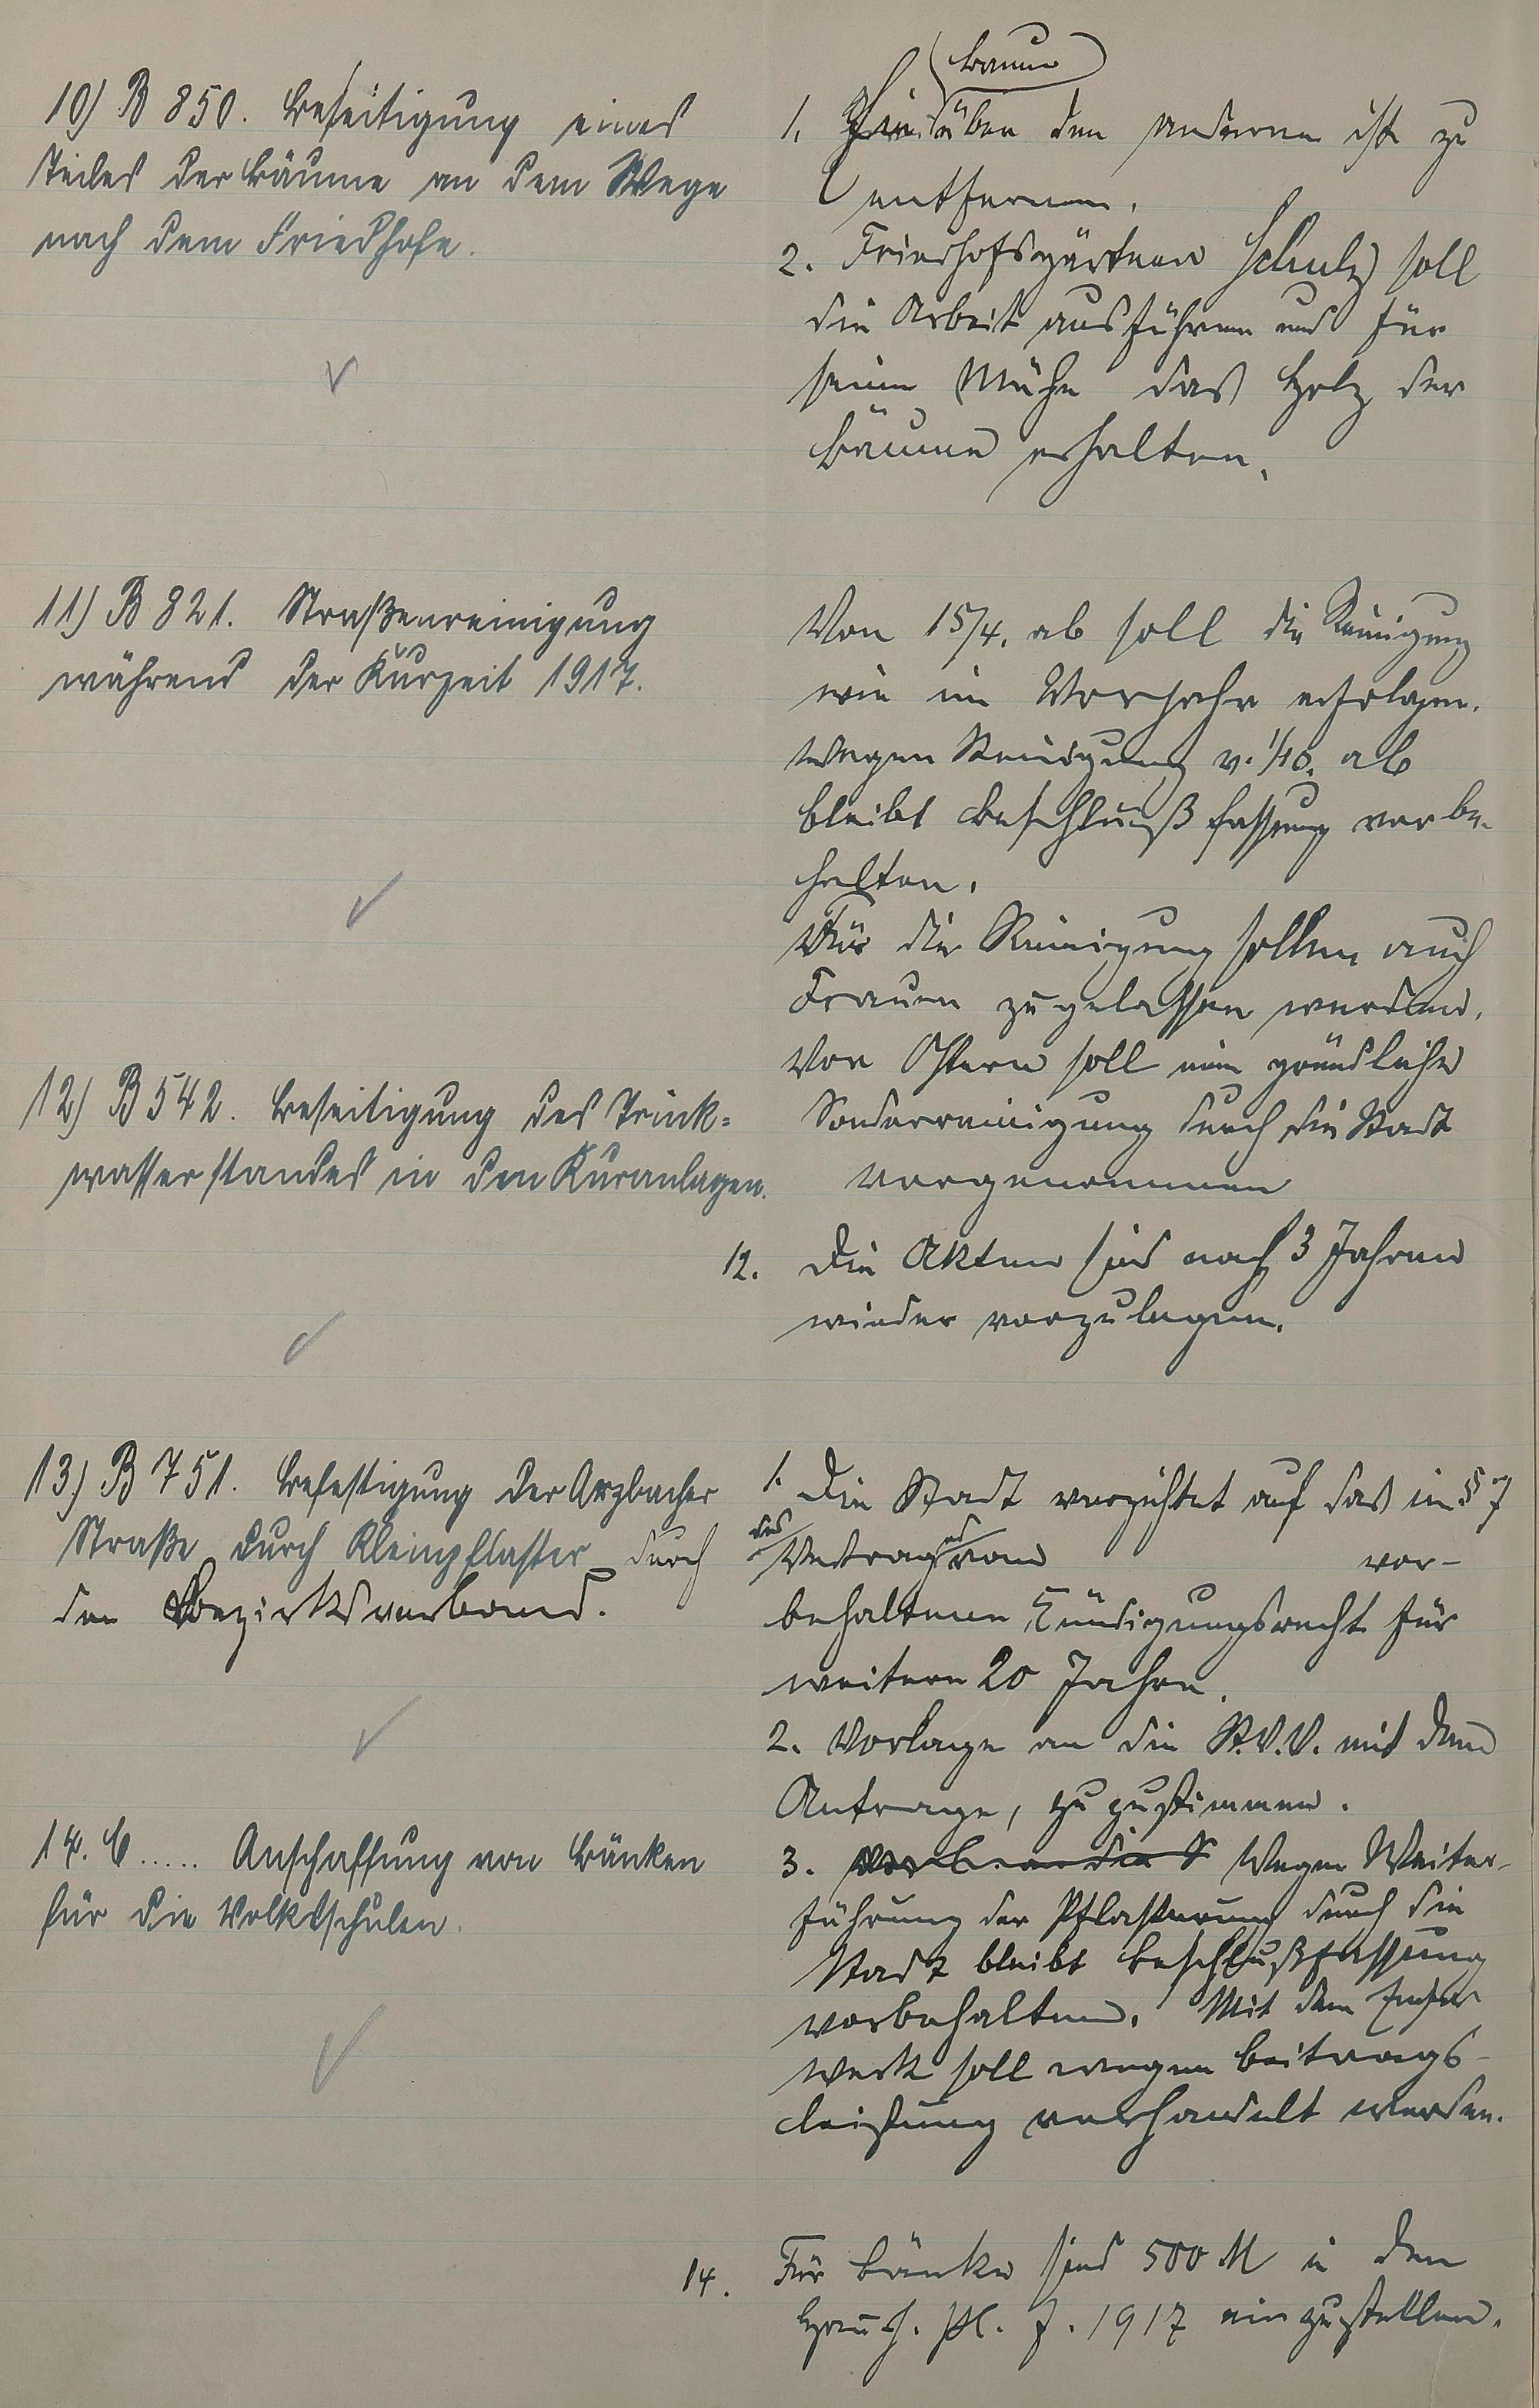 10) B 850. Beseitigung eines
Teiles der Bäume an dem Wege
nach dem Friedhofe.
Baum
1. über den anderen ist zu
entfernen.
2. Friedhofsgärtner Schulz soll
die Arbeit ausführen und für
seine Mühe das Holz der
Bäume erhalten.
11) B 821. Straßenreinigung
während der Kurzeit 1917.
Von 15/4. ab soll die Reinigung
wie im Vorjahr erfolgen.
Wegen Reinigung v. 1/10. ab
bleibt Beschlußfassung vorbe-
halten.
Für die Reinigung sollen auch
Frauen zugelassen werden.
Vor Ostern soll eine gründliche
Sonderreinigung durch die Stadt
vorgenommen
12) B 542. Beseitigung des Trink=
wasserstandes in den Kuranlagen.
12. Die Akten sind nach 3 Jahren
wieder vorzulegen.
13.) B 751. Befestigung der Arzbacher
Straße durch Kleinpflaster durch
den Bezirksverband.
1. Die Stadt verzichtet auf das in § 7
des
Vertrags vom vor-
behaltene Kündigungsrecht für
weitere 20 Jahre.
2. Vorlage an die St.V.V. mit dem
Antrage, zuzustimmen.
3. Vorl. an die S Wegen Weiter-
führung der Pflasterung durch die
Stadt bleibt Beschlußfassung
vorbehalten. Mit dem Emser
Werk soll wegen Beitrags-
leistung verhandelt werden.
14. C..... Anschaffung von Bänken
für die Volksschulen.
14. Für Bänke sind 500 M in den
Haush. pl. f. 1917 einzustellen.